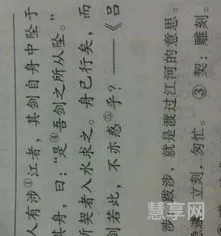 人有涉①江者，其剑自舟中坠于
其舟，曰：“是④吾剑之所从坠。”
所契者入水求之。舟已行矣，而
若此，不亦惑⑤乎？——《吕
涉，就是渡过江河的意思。
立刻，匆忙。 ③ 契：雕刻。
慧享网